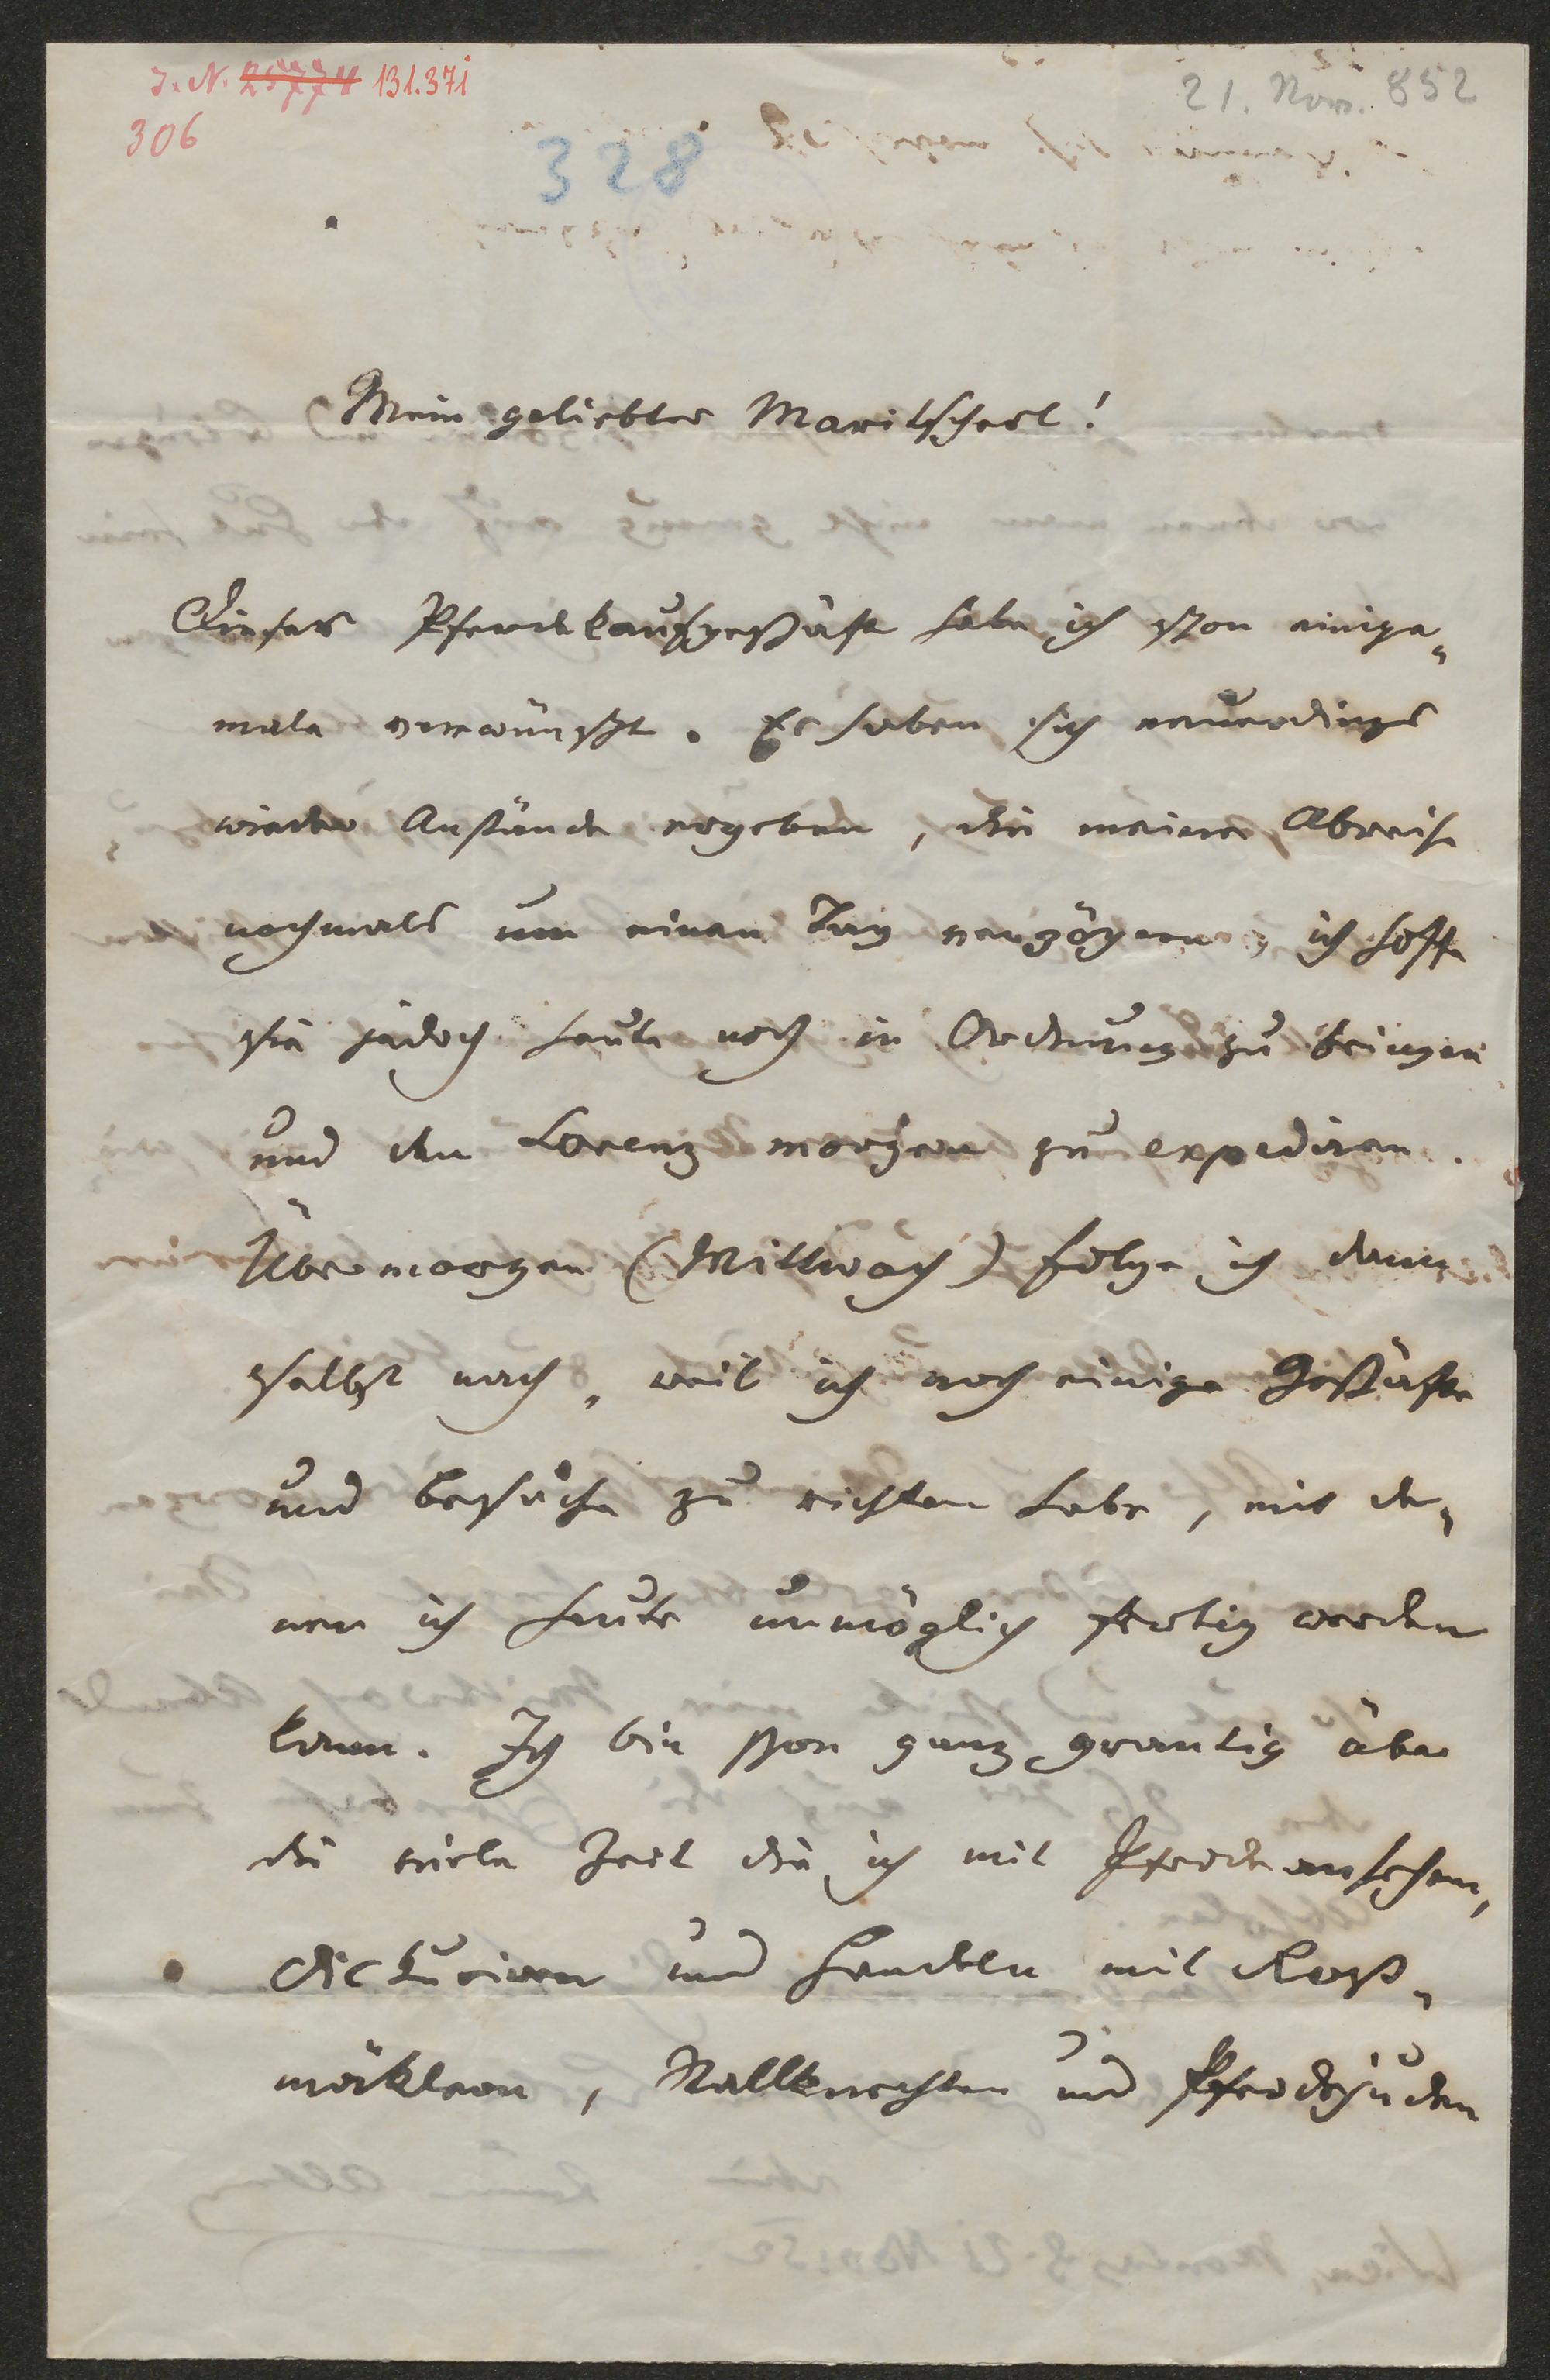 I. N. 25774 131.371
306
328
21. Nov. 852
Mein geliebtes Maritscherl!
Dieses Pferdekaufgeschäft habe ich schon einige-
male verwünscht. Es haben sich neuerdings
wieder Anstände ergeben, die meine Abreise
nochmals um einen Tag verzögern, ich hoffe
sie jedoch heute noch in Ordnung zu bringen
und den Lorenz morgen zu expediren.
Übermorgen (Mittwoch) folge ich dann
selbst nach, weil ich noch einige Geschäfte
und Besuche zu richten habe, mit de-
nen ich heute unmöglich fertig werden
kann. Ich bin schon ganz grantig über
die viele Zeit die ich mit Pferdeansehen,
diskuriren und handeln mit Roß-
mäklern, Stallknechten und Pferdejuden